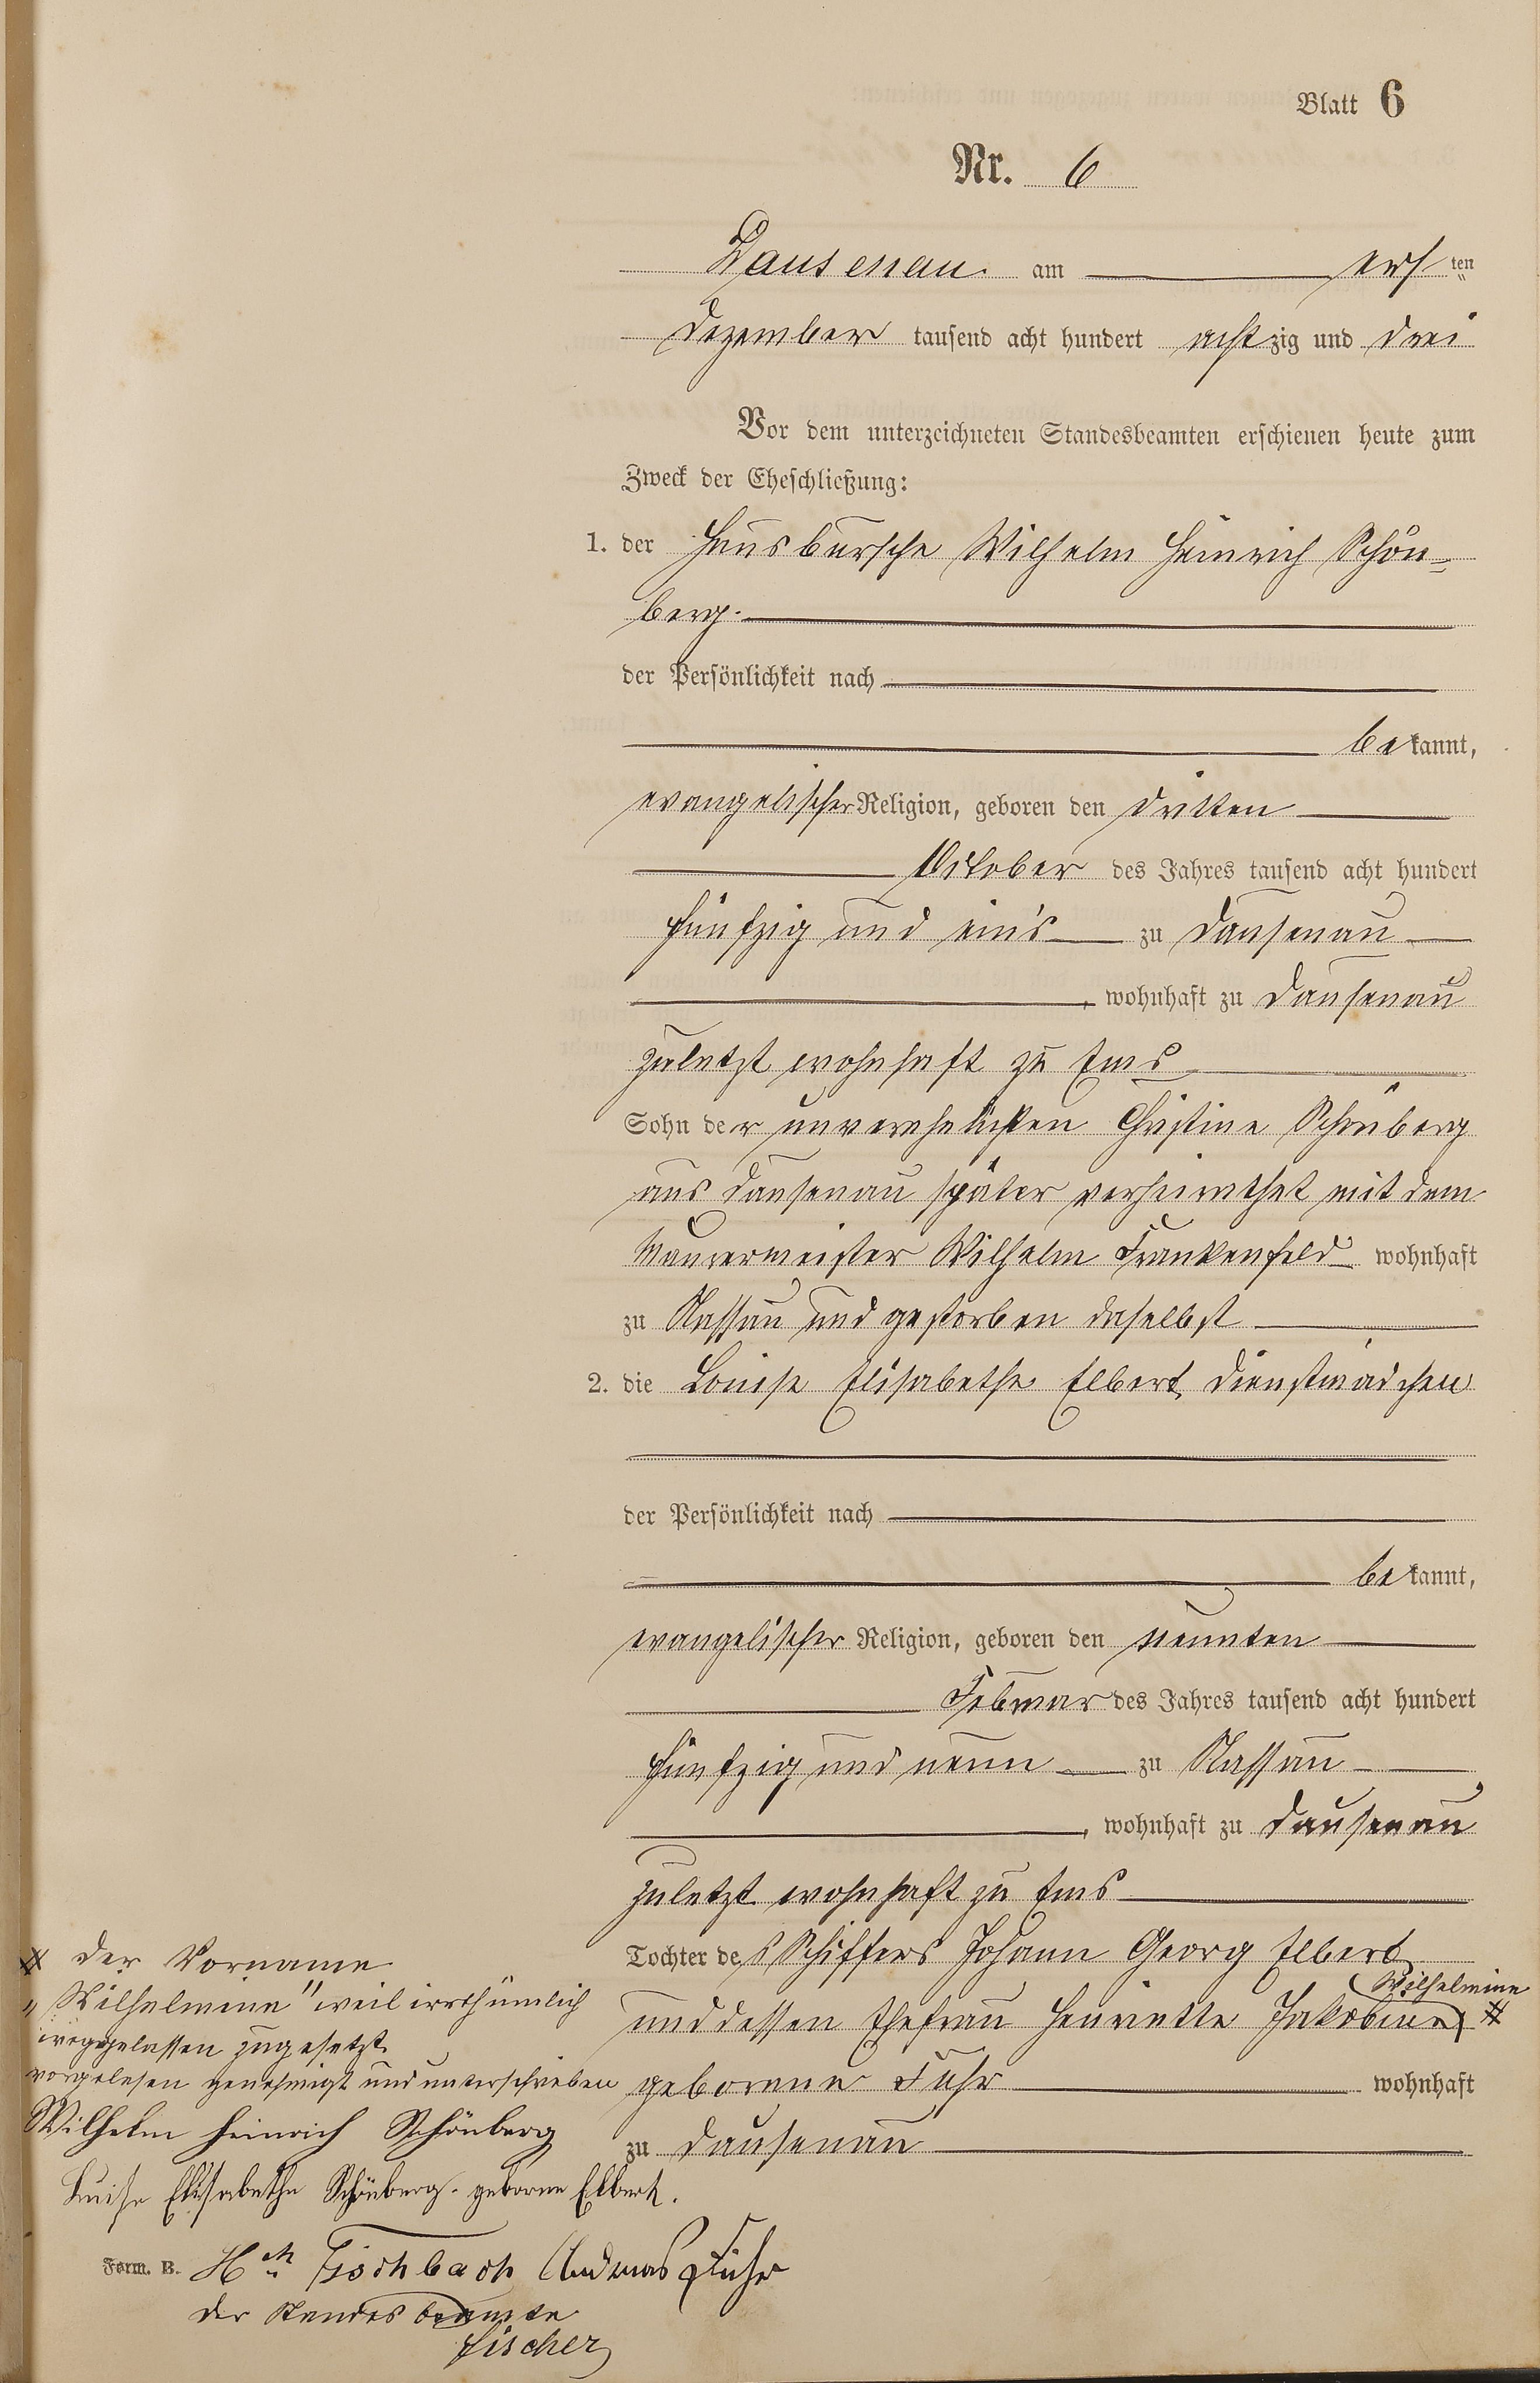 Blatt 6
Nr. 6
Dausenau am ersten
Dezember tausend acht hundert achtzig und drei
Vor dem unterzeichneten Standesbeamten erschienen heute zum
Zweck der Eheschließung:
1. der Hausbursche Wilhelm Heinrich Schön-
berg.
der Persönlichkeit nach
bekannt,
evangelischer Religion, geboren den dritten
October des Jahres tausend acht hundert
fünfzig und eins zu Dausenau
, wohnhaft zu Dausenau
zuletzt wohnhaft zu Ems
Sohn der unverehelichten Christine Schönberg
aus Dausenau später verheirathet mit dem
Maurermeister Wilhelm Frankenfeld wohnhaft
zu Nassau und gestorben daselbst
2. die Louise Elisabethe Elbert, Dienstmädchen
der Persönlichkeit nach
bekannt,
evangelischer Religion, geboren den neunten
Februar des Jahres tausend acht hundert
fünfzig und neun zu Nassau
, wohnhaft zu Dausenau
zuletzt wohnhaft zu Ems
Tochter des Schiffers Johann Georg Elbert
Wilhelmine
und dessen Ehefrau Henriette Jakobine #
geborene Fuhr wohnhaft
zu Dausenau
# Der Vorname
„Wilhelmine" weil irrthümlich
weggelassen zugesetzt
vorgelesen genehmigt und unterschrieben
Wilhelm Heinrich Schönberg
Luise Elisabethe Schönberg. geborne Elbert.
Form. B. Hch Fischbach Andreas Fuhr
Der Standesbeamte
Fischer